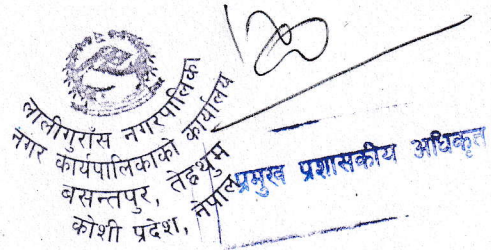 लालीगुराँस नगरपालिका
नगर कार्यपालिकाको कार्यालय
बसन्तपुर, तेह्रथुम
कोशी प्रदेश, नेपाल
प्रमुख प्रशासकीय अधिकृत